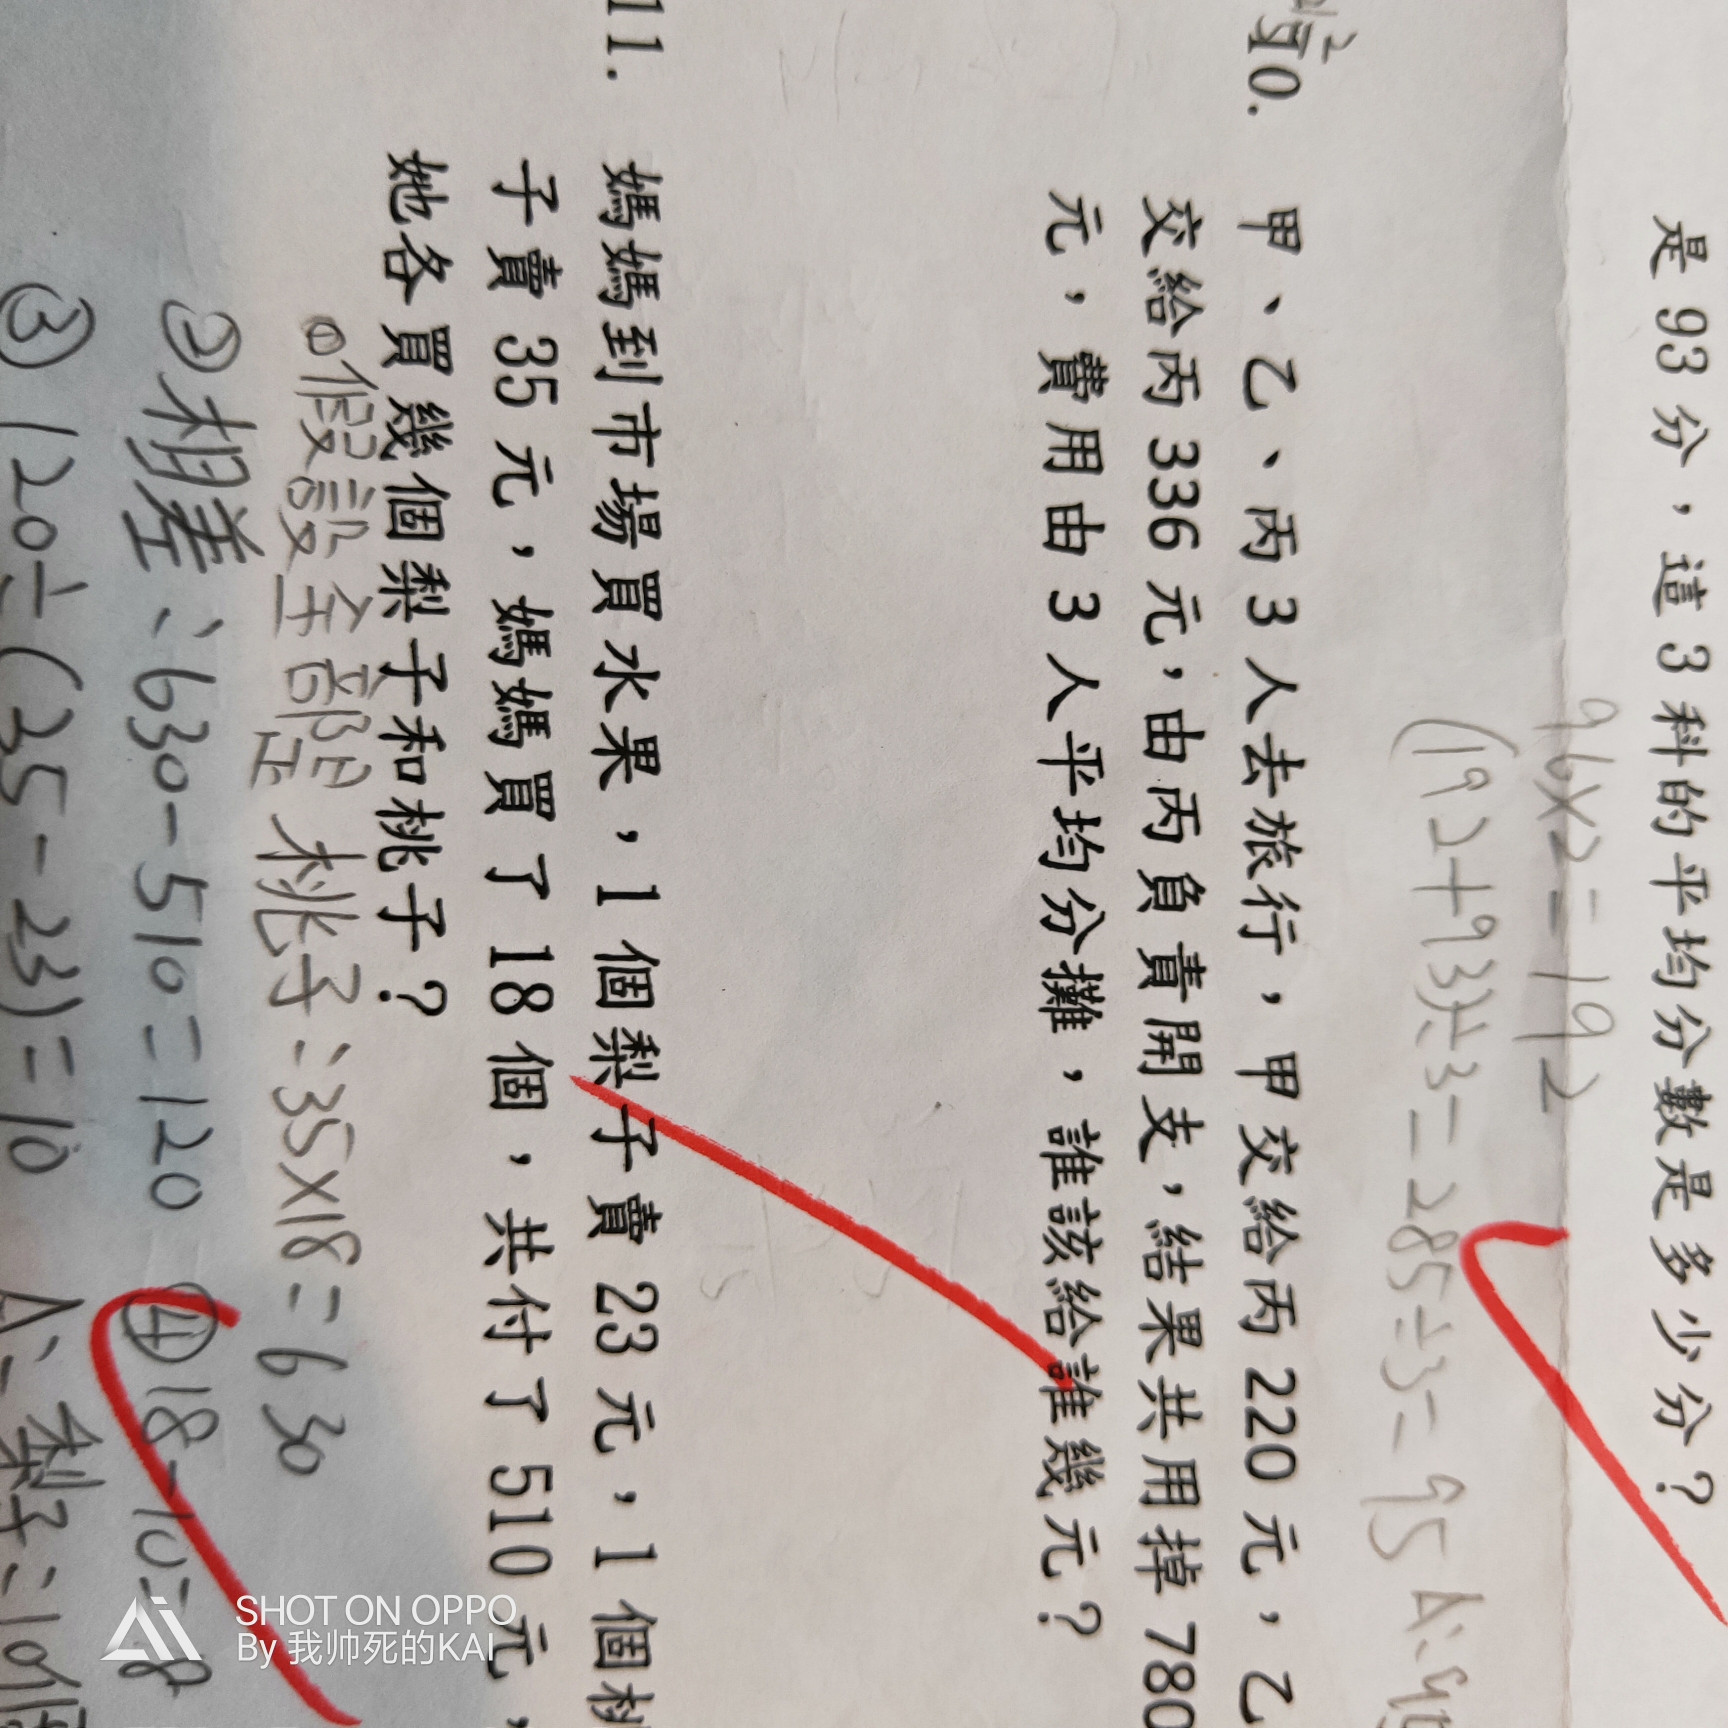 是 93 分，這 3 科的平均分數是多少分？
96×2=192
(192+93)÷3=285÷3=95 A:
10. 甲、乙、丙 3 人去旅行，甲交給丙 220 元，乙
交給丙 336 元，由丙負責開支，結果共用掉 780
元，費用由 3 人平均分攤，誰該給誰幾元？
11. 媽媽到市場買水果，1 個梨子賣 23 元，1 個桃
子賣 35 元，媽媽買了 18 個，共付了 510 元，
她各買幾個梨子和桃子？
①假設全部是桃子:35×18=630
②相差:630-510=120 ④18-10=8
③120÷(35-23)=10 A:梨子:10個
SHOT ON OPPO
By 我帅死的KAI